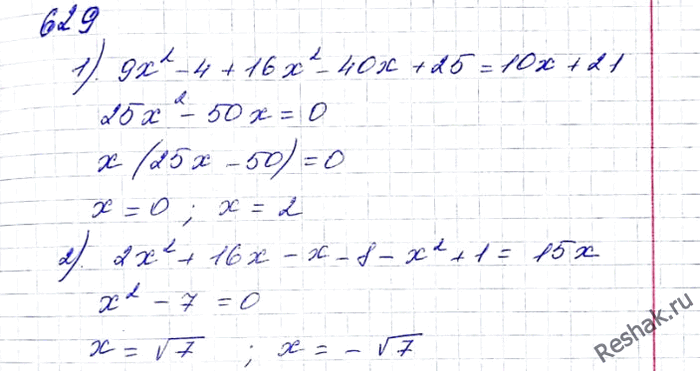 629
1). 9x² - 4 + 16x² - 40x + 25 = 10x + 21
25x² - 50x = 0
x (25x - 50) = 0
x = 0 ; x = 2
2). 2x² + 16x - x - 8 - x² + 1 = 15x
x² - 7 = 0
x = √7 ; x = - √7
Reshak.ru